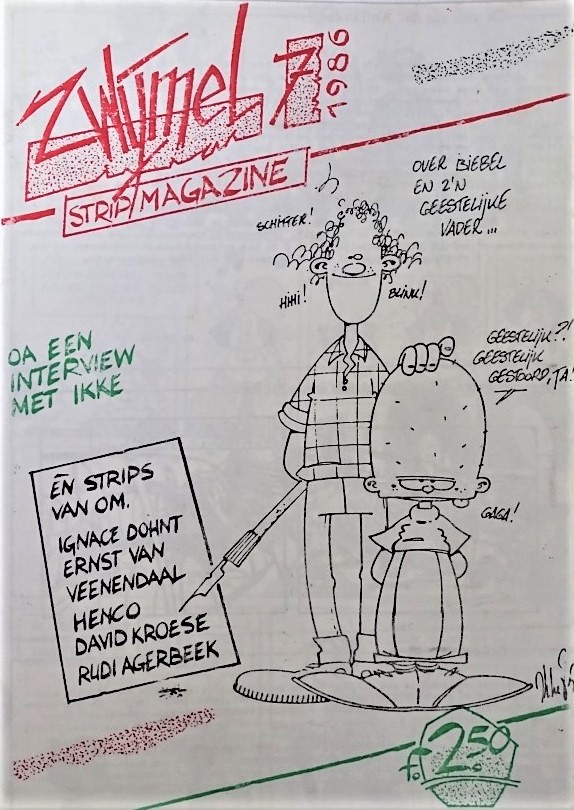 ZWIJMEL 7
1986
STRIP MAGAZINE
OVER BIEBEL
EN Z'N
GEESTELIJKE
VADER...
SCHITTER!
HIHI!
BLINK!
GEESTELIJK?!
GEESTELIJK
GESTOORD, JA!
GAGA!
OA EEN
INTERVIEW
MET IKKE
ÉN STRIPS
VAN OM.
IGNACE DOHNT
ERNST VAN
VEENENDAAL
HENCO
DAVID KROESE
RUDI AGERBEEK
f. 2.50